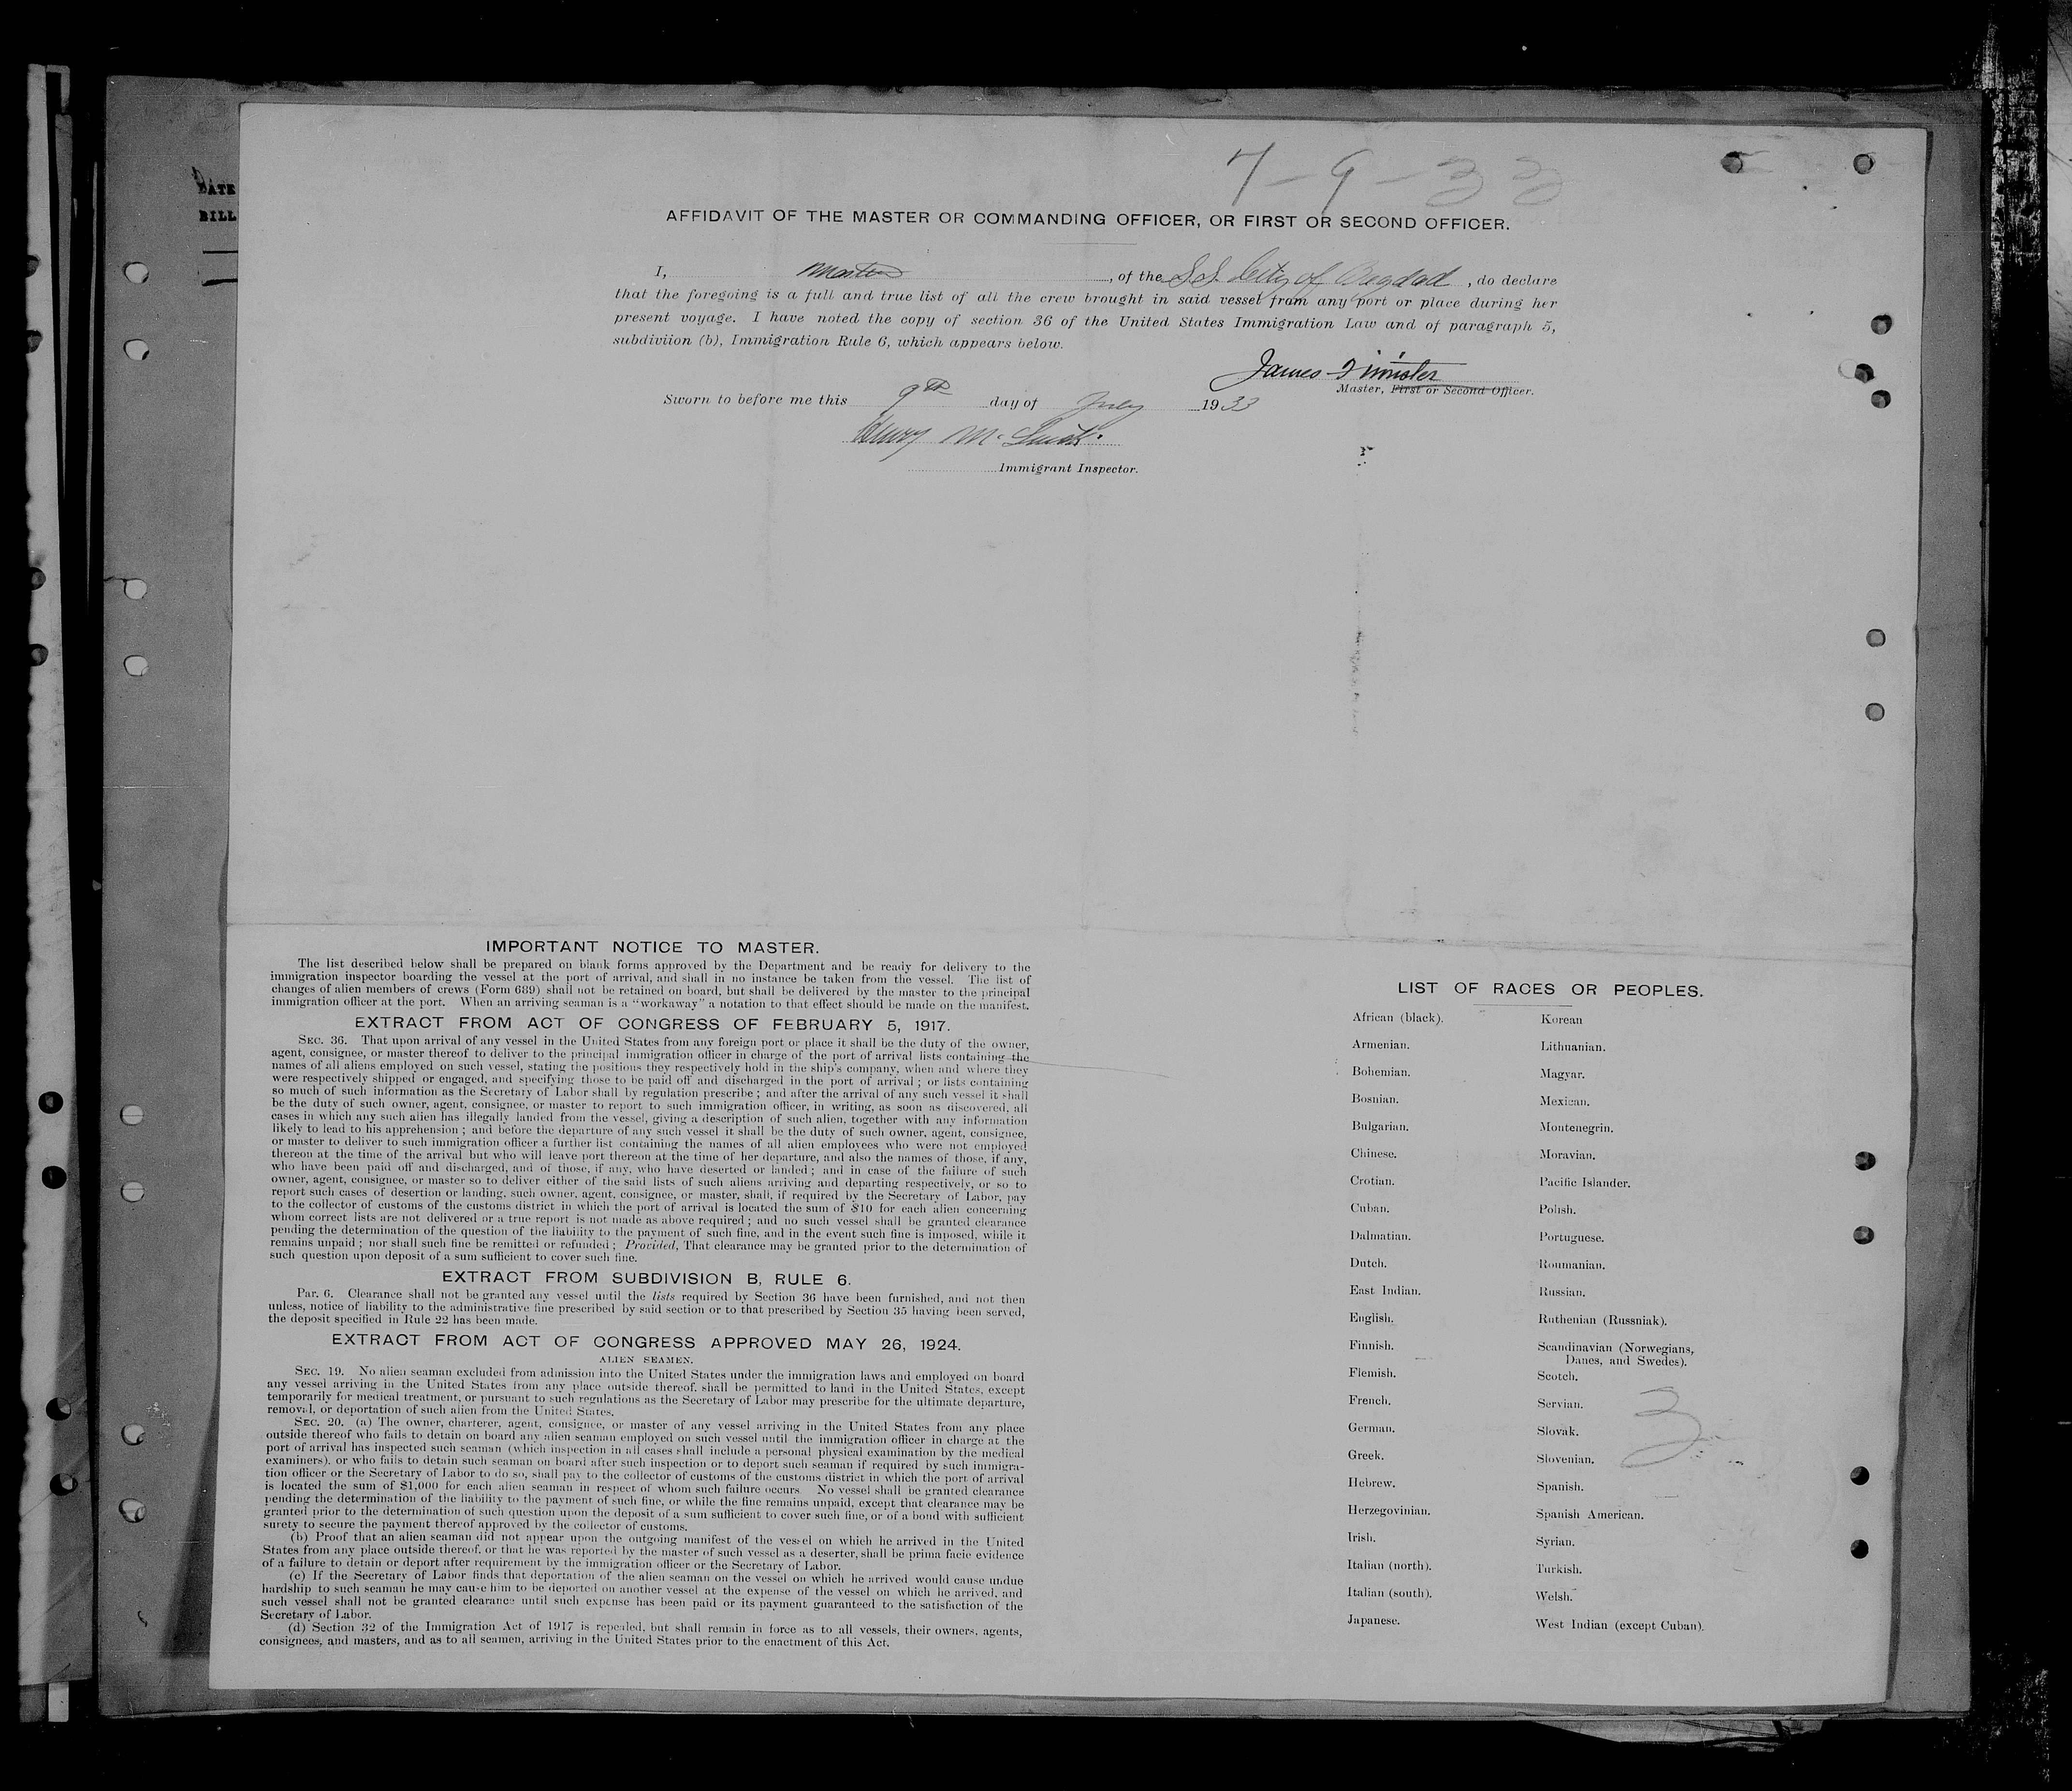 7-9-33
DATE
BILL
AFFIDAVIT OF THE MASTER OR COMMANDING OFFICER, OR FIRST OR SECOND OFFICER.
I, Master, of the SS City of Bagdad, do declare
that the foregoing is a full and true list of all the crew brought in said vessel from any port or place during her
present voyage. I have noted the copy of section 36 of the United States Immigration Law and of paragraph 5,
subdiviion (b), Immigration Rule 6, which appears below.
James
Master, First or Second Officer.
Sworn to before me this 9th day of July 1933
Henry M.
Immigrant Inspector.
IMPORTANT NOTICE TO MASTER.
The list described below shall be prepared on blank forms approved by the Department and be ready for delivery to the
immigration inspector boarding the vessel at the port of arrival, and shall in no instance be taken from the vessel. The list of
changes of alien members of crews (Form 689) shall not be retained on board, but shall be delivered by the master to the principal
immigration officer at the port. When an arriving seaman is a "workaway" a notation to that effect should be made on the manifest.
EXTRACT FROM ACT OF CONGRESS OF FEBRUARY 5, 1917.
SEC. 36. That upon arrival of any vessel in the United States from any foreign port or place it shall be the duty of the owner,
agent, consignee, or master thereof to deliver to the principal immigration officer in charge of the port of arrival lists containing the
names of all aliens employed on such vessel, stating the positions they respectively hold in the ship's company, when and where they
were respectively shipped or engaged, and specifying those to be paid off and discharged in the port of arrival; or lists containing
so much of such information as the Secretary of Labor shall by regulation prescribe; and after the arrival of any such vessel it shall
be the duty of such owner, agent, consignee, or master to report to such immigration officer, in writing, as soon as discovered, all
cases in which any such alien has illegally landed from the vessel, giving a description of such alien, together with any information
likely to lead to his apprehension; and before the departure of any such vessel it shall be the duty of such owner, agent, consignee,
or master to deliver to such immigration officer a further list containing the names of all alien employees who were not employed
thereon at the time of the arrival but who will leave port thereon at the time of her departure, and also the names of those, if any,
who have been paid off and discharged, and of those, if any, who have deserted or landed; and in case of the failure of such
owner, agent, consignee, or master so to deliver either of the said lists of such aliens arriving and departing respectively, or so to
report such cases of desertion or landing, such owner, agent, consignee, or master, shall, if required by the Secretary of Labor, pay
to the collector of customs of the customs district in which the port of arrival is located the sum of $10 for each alien concerning
whom correct lists are not delivered or a true report is not made as above required; and no such vessel shall be granted clearance
pending the determination of the question of the liability to the payment of such fine, and in the event such fine is imposed, while it
remains unpaid; nor shall such fine be remitted or refunded; Provided, That clearance may be granted prior to the determination of
such question upon deposit of a sum sufficient to cover such fine.
EXTRACT FROM SUBDIVISION B, RULE 6.
Par. 6. Clearance shall not be granted any vessel until the lists required by Section 36 have been furnished, and not then
unless, notice of liability to the administrative fine prescribed by said section or to that prescribed by Section 35 having been served,
the deposit specified in Rule 22 has been made.
EXTRACT FROM ACT OF CONGRESS APPROVED MAY 26, 1924.
ALIEN SEAMEN.
SEC. 19. No alien seaman excluded from admission into the United States under the immigration laws and employed on board
any vessel arriving in the United States from any place outside thereof, shall be permitted to land in the United States, except
temporarily for medical treatment, or pursuant to such regulations as the Secretary of Labor may prescribe for the ultimate departure,
removal, or deportation of such alien from the United States.
SEC. 20. (a) The owner, charterer, agent, consignee, or master of any vessel arriving in the United States from any place
outside thereof who fails to detain on board any alien seaman employed on such vessel until the immigration officer in charge at the
port of arrival has inspected such seaman (which inspection in all cases shall include a personal physical examination by the medical
examiners), or who fails to detain such seaman on board after such inspection or to deport such seaman if required by such immigra-
tion officer or the Secretary of Labor to do so, shall pay to the collector of customs of the customs district in which the port of arrival
is located the sum of $1,000 for each alien seaman in respect of whom such failure occurs. No vessel shall be granted clearance
pending the determination of the liability to the payment of such fine, or while the fine remains unpaid, except that clearance may be
granted prior to the determination of such question upon the deposit of a sum sufficient to cover such fine, or of a bond with sufficient
surety to secure the payment thereof approved by the collector of customs.
(b) Proof that an alien seaman did not appear upon the outgoing manifest of the vessel on which he arrived in the United
States from any place outside thereof, or that he was reported by the master of such vessel as a deserter, shall be prima facie evidence
of a failure to detain or deport after requirement by the immigration officer or the Secretary of Labor.
(c) If the Secretary of Labor finds that deportation of the alien seaman on the vessel on which he arrived would cause undue
hardship to such seaman he may cause him to be deported on another vessel at the expense of the vessel on which he arrived, and
such vessel shall not be granted clearance until such expense has been paid or its payment guaranteed to the satisfaction of the
Secretary of Labor.
(d) Section 32 of the Immigration Act of 1917 is repealed, but shall remain in force as to all vessels, their owners, agents,
consignees, and masters, and as to all seamen, arriving in the United States prior to the enactment of this Act.
LIST OF RACES OR PEOPLES.
African (black).
Armenian.
Bohemian.
Bosnian.
Bulgarian.
Chinese.
Crotian.
Cuban.
Dalmatian.
Dutch.
East Indian.
English.
Finnish.
Flemish.
French.
German.
Greek.
Hebrew.
Herzegovinian.
Irish.
Italian (north).
Italian (south).
Japanese.
Korean
Lithuanian.
Magyar.
Mexican.
Montenegrin.
Moravian.
Pacific Islander.
Polish.
Portuguese.
Roumanian.
Russian.
Ruthenian (Russniak).
Scandinavian (Norwegians,
Danes, and Swedes).
Scotch.
Servian.
Slovak.
Slovenian.
Spanish.
Spanish American.
Syrian.
Turkish.
Welsh.
West Indian (except Cuban).
3